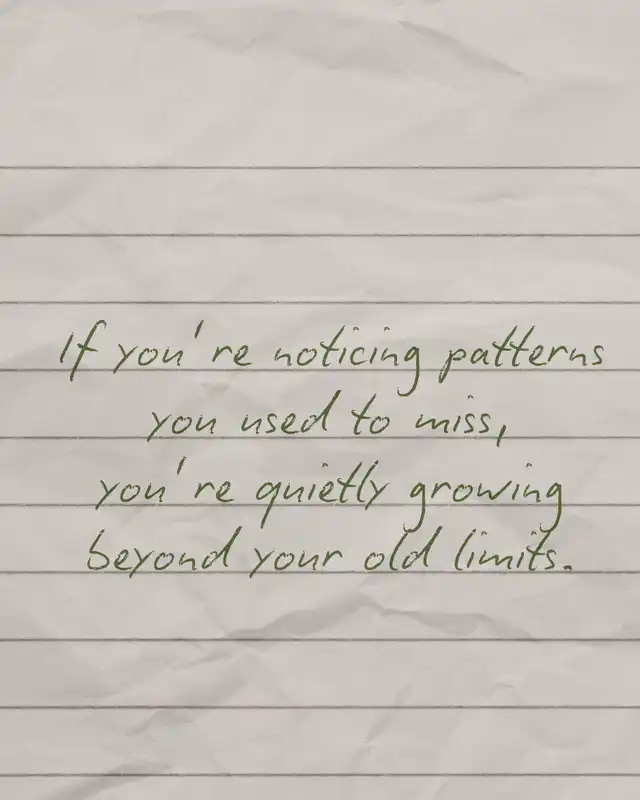 If you're noticing patterns
you used to miss,
you're quietly growing
beyond your old limits.